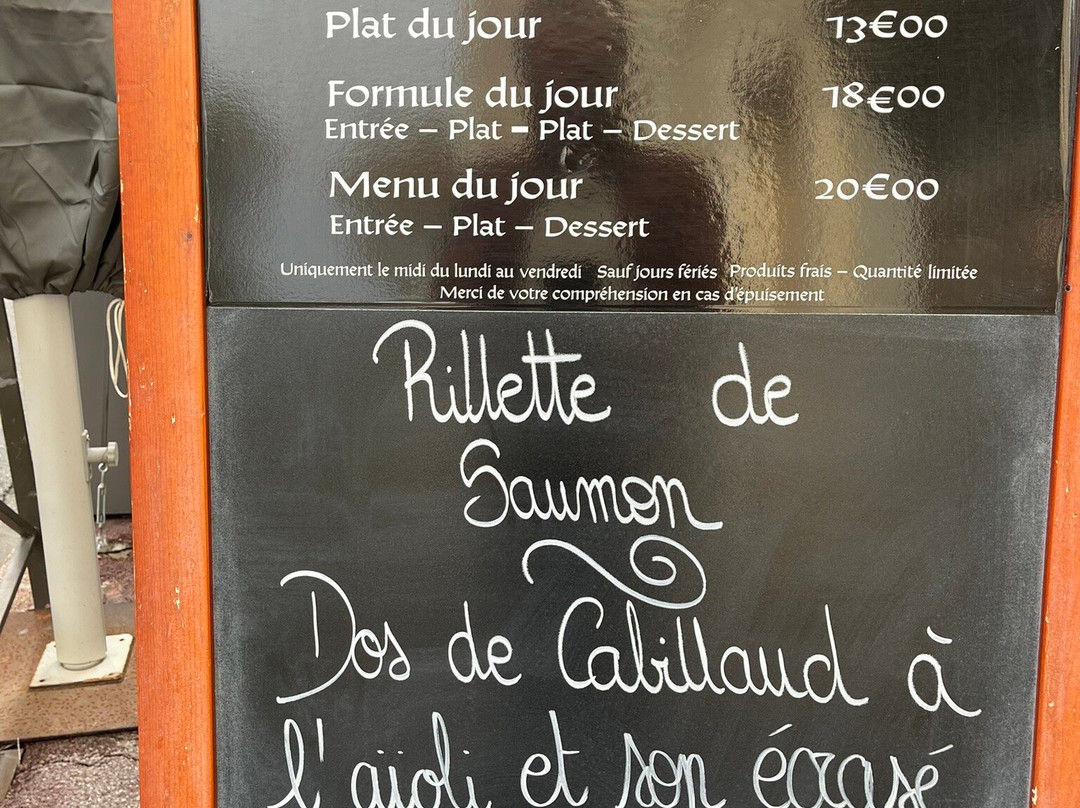 Plat du jour 13€00
Formule du jour 18€00
Entrée – Plat – Plat – Dessert
Menu du jour 20€00
Entrée – Plat – Dessert
Uniquement le midi du lundi au vendredi Sauf jours fériés Produits frais – Quantité limitée
Merci de votre compréhension en cas d'épuisement
Rillette de
Saumon
Dos de Cabillaud à
l'aïoli et son écrasé